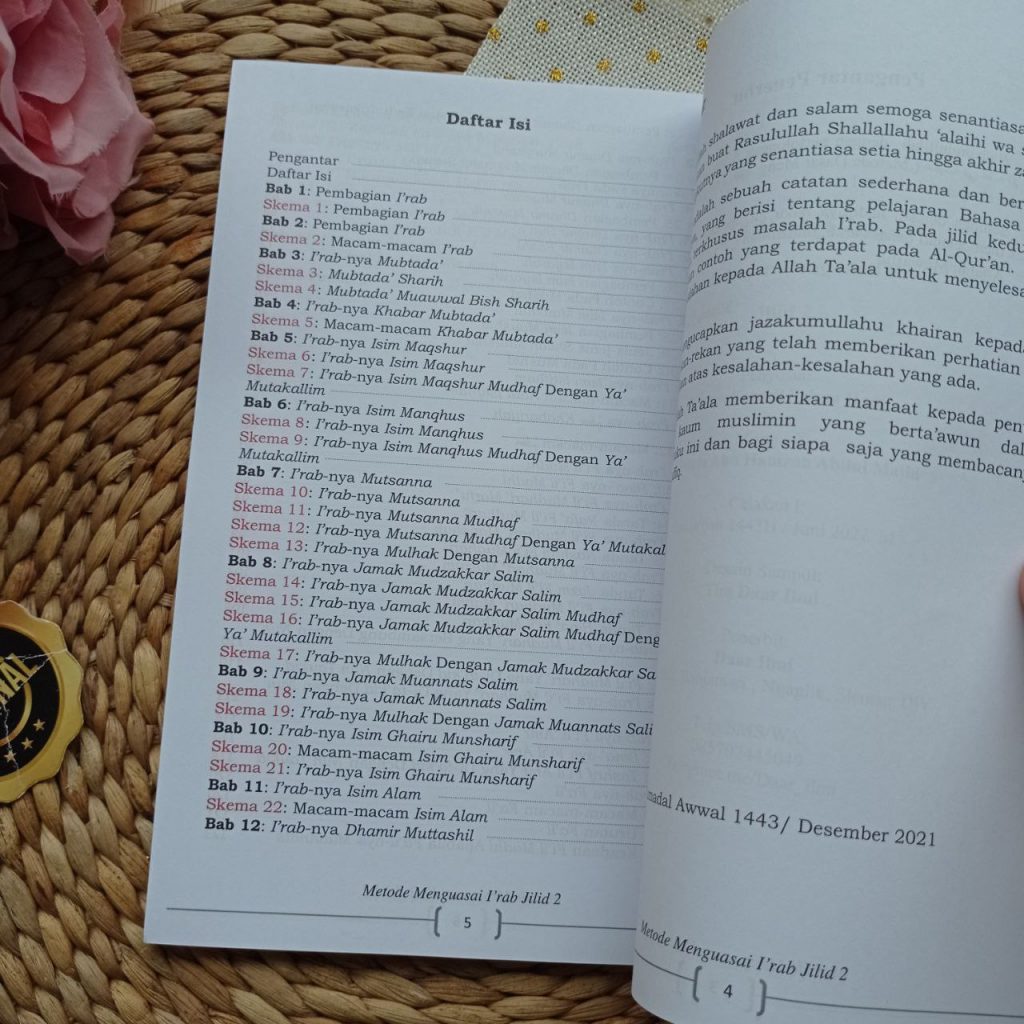 Daftar Isi
Pengantar
Daftar Isi
Bab 1: Pembagian I'rab
Skema 1: Pembagian I'rab
Bab 2: Pembagian I'rab
Skema 2: Macam-macam I'rab
Bab 3: I'rab-nya Mubtada'
Skema 3: Mubtada' Sharih
Skema 4: Mubtada' Muawwal Bish Sharih
Bab 4: I'rab-nya Khabar Mubtada'
Skema 5: Macam-macam Khabar Mubtada'
Bab 5: I'rab-nya Isim Maqshur
Skema 6: I'rab-nya Isim Maqshur
Skema 7: I'rab-nya Isim Maqshur Mudhaf Dengan Ya'
Mutakallim
Bab 6: I'rab-nya Isim Manqhus
Skema 8: I'rab-nya Isim Manqhus
Skema 9: I'rab-nya Isim Manqhus Mudhaf Dengan Ya'
Mutakallim
Bab 7: I'rab-nya Mutsanna
Skema 10: I'rab-nya Mutsanna
Skema 11: I'rab-nya Mutsanna Mudhaf
Skema 12: I'rab-nya Mutsanna Mudhaf Dengan Ya' Mutakal
Skema 13: I'rab-nya Mulhak Dengan Mutsanna
Bab 8: I'rab-nya Jamak Mudzakkar Salim
Skema 14: I'rab-nya Jamak Mudzakkar Salim
Skema 15: I'rab-nya Jamak Mudzakkar Salim Mudhaf
Skema 16: I'rab-nya Jamak Mudzakkar Salim Mudhaf Deng
Ya' Mutakallim
Skema 17: I'rab-nya Mulhak Dengan Jamak Mudzakkar Sa
Bab 9: I'rab-nya Jamak Muannats Salim
Skema 18: I'rab-nya Jamak Muannats Salim
Skema 19: I'rab-nya Mulhak Dengan Jamak Muannats Sali
Bab 10: I'rab-nya Isim Ghairu Munsharif
Skema 20: Macam-macam Isim Ghairu Munsharif
Skema 21: I'rab-nya Isim Ghairu Munsharif
Bab 11: I'rab-nya Isim Alam
Skema 22: Macam-macam Isim Alam
Bab 12: I'rab-nya Dhamir Muttashil
Metode Menguasai I'rab Jilid 2
5
shalawat dan salam semoga senantiasa
buat Rasulullah Shallallahu 'alaihi wa
yang senantiasa setia hingga akhir
sebuah catatan sederhana dan ber
yang berisi tentang pelajaran Bahasa
masalah I'rab. Pada jilid kedu
contoh yang terdapat pada Al-Qur'an.
kepada Allah Ta'ala untuk menyelesa
jazakumullahu khairan kepada
yang telah memberikan perhatian
atas kesalahan-kesalahan yang ada.
Ta'ala memberikan manfaat kepada pen
kaum muslimin yang berta'awun dal
ini dan bagi siapa saja yang membacan
madal Awwal 1443/ Desember 2021
Metode Menguasai I'rab Jilid 2
4